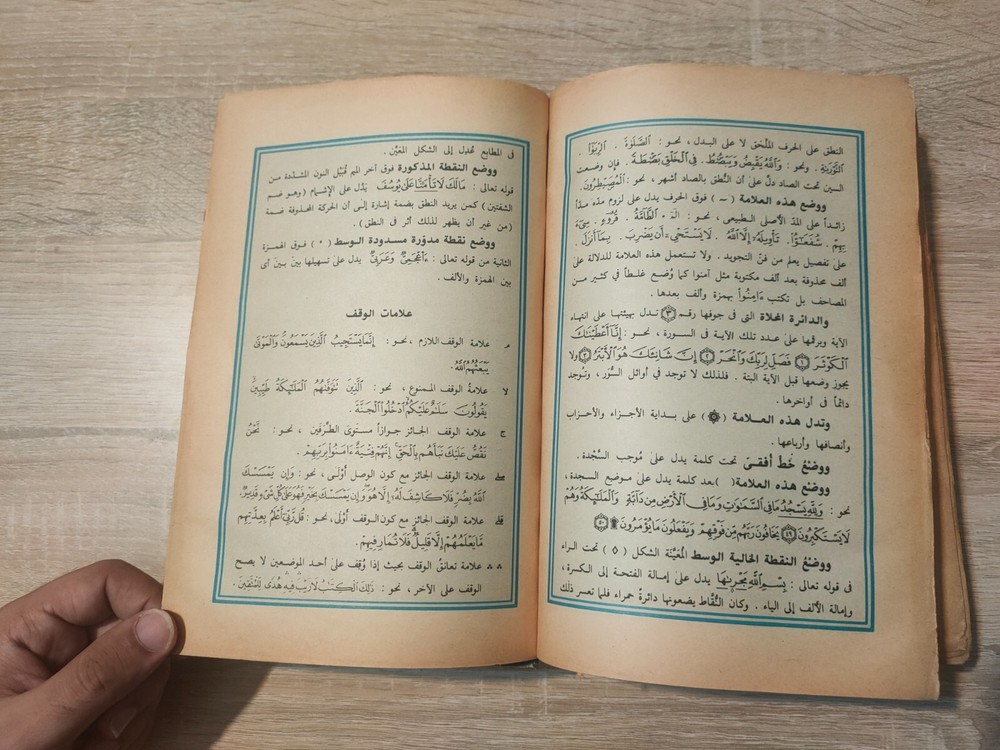 النطق على الحرف الملحق لا على البدل ، نحو : ٱلصَّلَوٰةَ . ٱلرِّبَوٰا۟ .
ٱلتَّوْرَىٰةِ . ونحو : وَٱللَّهُ يَقْبِضُ وَيَبْصُۜطُ . فِى ٱلْخَلْقِ بَصْۜطَةً . فإن وضعت
السين تحت الصاد دلّ على أن النُّطق بالصاد أشهر ، نحو : ٱلْمُصَۣيْطِرُونَ .
ووضع هذه العلامة ( ~ ) فوق الحرف يدل على لزوم مدّه مدًّا
زائداً على المدّ الأصلى الطبيعى ، نحو : الٓمٓ . ٱلطَّآمَّةُ . قُرُوٓءٍ . سِىٓءَ
بِهِمْ . شُفَعَٰٓؤُا۟ . تَأْوِيلَهُۥٓ إِلَّا ٱللَّهُ . لَا يَسْتَحْىِۦٓ أَن يَضْرِبَ . بِمَآ أَنزَلَ .
على تفصيل يعلم من فنّ التجويد . ولا تستعمل هذه العلامة للدلالة على
ألف محذوفة بعد ألف مكتوبة مثل آمنوا كما وُضع غلطاً فى كثير من
المصاحف بل تكتب ءَامَنُوا۟ بهمزة وألف بعدها .
والدائرة المحلاة التى فى جوفها رقم ۝٣ تدل بهيئتها على انتهاء
الآية وبرقمها على عدد تلك الآية فى السورة ، نحو : إِنَّآ أَعْطَيْنَٰكَ
ٱلْكَوْثَرَ ۝١ فَصَلِّ لِرَبِّكَ وَٱنْحَرْ ۝٢ إِنَّ شَانِئَكَ هُوَ ٱلْأَبْتَرُ ۝٣ ولا
يجوز وضعها قبل الآية البتة . فلذلك لا توجد فى أوائل السُّور ، وتُوجد
دائمًا فى أواخرها .
وتدل هذه العلامة ( ۞ ) على بداية الأجزاء والأحزاب
وأنصافها وأرباعها .
ووضعُ خط أفقىّ تحت كلمة يدل على مُوجب السَّجدة .
ووضع هذه العلامة ( ۩ ) بعد كلمة يدل على موضع السجدة ،
نحو : وَلِلَّهِ يَسْجُدُ مَا فِى ٱلسَّمَٰوَٰتِ وَمَا فِى ٱلْأَرْضِ مِن دَآبَّةٍ وَٱلْمَلَٰٓئِكَةُ وَهُمْ
لَا يَسْتَكْبِرُونَ ۝٤٩ يَخَافُونَ رَبَّهُم مِّن فَوْقِهِمْ وَيَفْعَلُونَ مَا يُؤْمَرُونَ ۩ ۝٥٠
ووضْعُ النقطة الخالية الوسط المُعَيَّنة الشكل ( ◊ ) تحت الراء
فى قوله تعالى : بِسْمِ ٱللَّهِ مَجْر۪ىٰهَا يدل على إمالة الفتحة إلى الكسرة ،
وإمالة الألف إلى الياء . وكان النُّقَّاط يضعونها دائرةً حمراء فلما تعسر ذلك
فى المطابع عُدِل إلى الشكل المُعيَّن .
ووضع النقطة المذكورة فوق آخر الميم قُبَيْل النون المشدَّدة من
قوله تعالى : مَالَكَ لَا تَأْمَ۫نَّا عَلَىٰ يُوسُفَ يَدُل على الإشمام ( وهو ضم
الشفتين ) كمن يريد النطق بضمة إشارة إلى أن الحركة المحذوفة ضمة
( من غير أن يظهر لذلك أثر فى النطق ) .
ووضع نقطة مدوّرة مسدودة الوسط ( • ) فوق الهمزة
الثانية من قوله تعالى : ءَا۬عْجَمِىٌّ وَعَرَبِىٌّ يدل على تسهيلها بينَ بينَ أى
بين الهمزة والألف .
علامات الوقف
مـ علامة الوقف اللازم ، نحو : إِنَّمَا يَسْتَجِيبُ ٱلَّذِينَ يَسْمَعُونَ ۘ وَٱلْمَوْتَىٰ
يَبْعَثُهُمُ ٱللَّهُ .
لا علامةُ الوقف الممنوع ، نحو : ٱلَّذِينَ تَتَوَفَّىٰهُمُ ٱلْمَلَٰٓئِكَةُ طَيِّبِينَ ۙ
يَقُولُونَ سَلَٰمٌ عَلَيْكُمُ ٱدْخُلُوا۟ ٱلْجَنَّةَ .
ج علامة الوقف الجائز جوازاً مستوىَ الطرَفين ، نحو : نَّحْنُ
نَقُصُّ عَلَيْكَ نَبَأَهُم بِٱلْحَقِّ ۚ إِنَّهُمْ فِتْيَةٌ ءَامَنُوا۟ بِرَبِّهِمْ .
صلى علامة الوقف الجائز مع كون الوصل أَوْلى ، نحو : وَإِن يَمْسَسْكَ
ٱللَّهُ بِضُرٍّ فَلَا كَاشِفَ لَهُۥٓ إِلَّا هُوَ ۖ وَإِن يَمْسَسْكَ بِخَيْرٍ فَهُوَ عَلَىٰ كُلِّ شَىْءٍ قَدِيرٌ .
قلى علامة الوقف الجائز مع كون الوقف أَوْلى ، نحو : قُل رَّبِّىٓ أَعْلَمُ بِعِدَّتِهِم
مَّا يَعْلَمُهُمْ إِلَّا قَلِيلٌ ۗ فَلَا تُمَارِ فِيهِمْ .
∴ ∴ علامة تعانُق الوقف بحيث إذا وُقف على أحد الموضعين لا يصح
الوقف على الآخر ، نحو : ذَٰلِكَ ٱلْكِتَٰبُ لَا رَيْبَ ۛ فِيهِ ۛ هُدًى لِّلْمُتَّقِينَ .